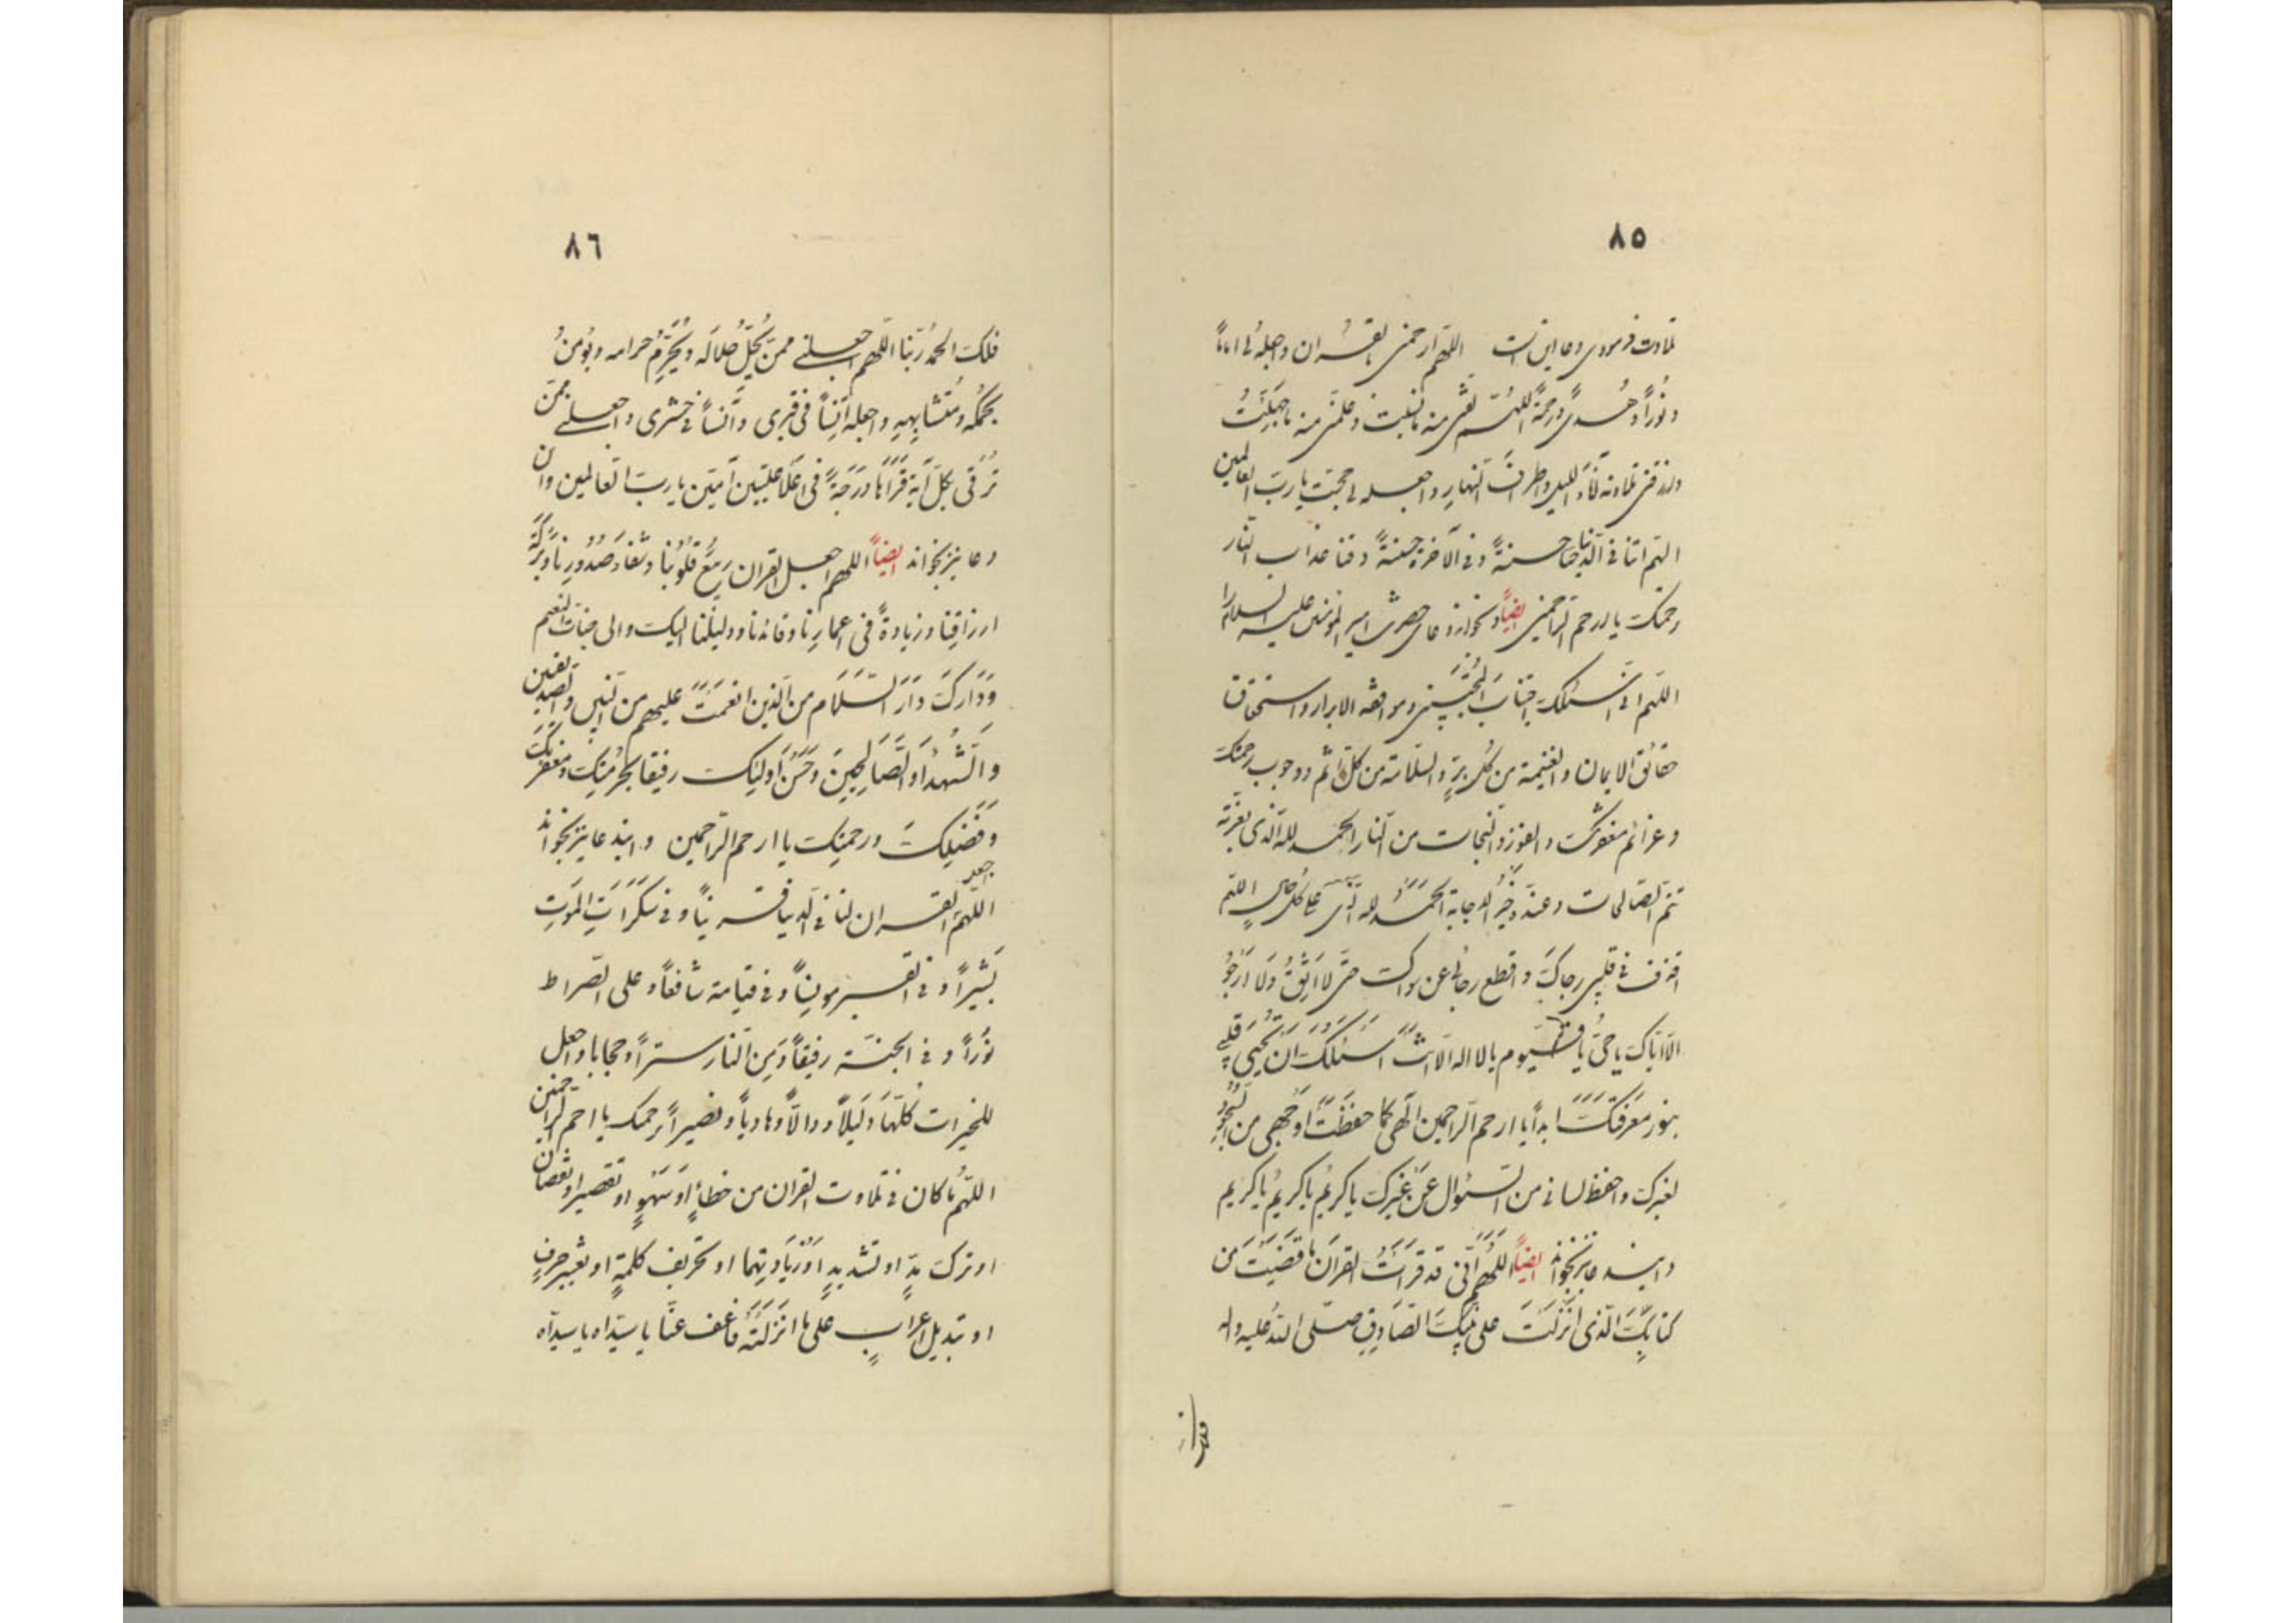 ٨٥
تلاوت فرمودی دعا این است اللّهم ارحمنی بالقران واجعله لی اماماً
و نُوراً وهُدیً ورحمةً اللهمّ ذکرنی منه ما نسیت وعلمنی منه ما جهلتُ
وارزقنی تلاوته آناءَ اللیل واطرافَ النّهارِ واجعله لی حجة یا ربَ العالمین
اللهم اتنا فی الدّنیا حسنةً وفی الآخرة حسنةً وقنا عذاب النّار
برحمتک یا ارحم الرّاحمین ایضاً و بخواند دعای حضرت امیر المؤمنین علیه السلام را
اللّهم انی اسئلک اخباتَ المُخْبِتینَ ومرافقه الابرار واستحقاق
حقائق الایمان والغنیمة من کل برٍّ والسّلامة من کل اثم ووجوب رحمتک
وعزائم مغفرتک والفوز والنّجات من النّار الحمد لله الّذی بعزّته
تتم الصّالحات وعنده خیرُ الاجابة الحَمدُ لله الّذی علی کل حالٍ اللهم
اقذف فی قلبی رجاکَ واقطع رجائی عن سواک حتّی لا اَثِقُ وَلا اَرْجُو
الّا ایّاکَ یا حیُّ یا قیّوم یا لا اله الّا انتَ اَسئلکَ ان تُحیی قلبی
بنور معرفتکَ ابداً یا ارحم الرّاحمین الهی کما حفظتَ وجهی من السّجُودِ
لغیرک واحفظ لسانی من السّئوال عَنْ غیرکَ یا کریمُ یا کریمُ یا کریم
و این دعا نیز بخواند ایضاً اللّهُمَّ اِنّی قد قراتُ القرانَ ما قضیتَ من
کتابکَ الّذی انزلتَ علی نبیّکَ الصّادق صلّی اللهُ علیه واله
٨٦
فلکَ الحمدُ ربّنا اللّهم اجعلنی ممّن یُحِلُّ حلالَه ویُحَرِّمُ حرامه ویؤمنُ
بمحکمه ومُتشابِهِهِ واجعله اُنساً فی قبری واُنساً فی حشری واجعلنی ممّن
تُرقی بکلّ آیة قراَها درَجَةً فی اَعلا علّیّین آمین یا ربَ العالمین و ان
دعا نیز بخواند ایضاً اللهم اجعل القران ربیعَ قُلُوبُنا وشفاء صُدُورِنا وبرکة
ارزاقِنا وزیادةً فی اعمارِنا وقائدنا ودلیلنا الیک والی جنّات النّعیم
وَدارکَ دارَ السَّلام من الّذین انعمتَ علیهم من النّبیین والصدّیقین
والشُّهَداء والصّالحینَ وحَسُنَ اولئک رفیقا بحُرمتِک ومغفرتک
وَفضلِکَ ورحمتِک یا ارحم الرّاحمین و این دعا نیز بخواند
اللّهم اجعل القران لنا فی الدّنیا قریناً وفی سَکَراتِ المَوتِ
بَشیراً وفی القبر مونِساً وفی قیامة شافعاً وعلی الصّراط
نوراً وفی الجنّة رفیقاً ومِن النّار ستراً وحجابا واجعل
للخیرات کُلّها دَلیلاً ودالاً وهادیاً ونصیراً برحمتک یا ارحم الرّاحمین
اللّهُمّ ما کان فی تلاوت القران من خطاءٍ اوسَهوٍ او تقصیر او نقصان
او ترک مدٍّ او تشدیدٍ اوزیادَتِهما او تحریف کلمةٍ او تغییر حرفٍ
او تبدیل اعرابٍ علی ما انزلتَهُ فاعف عنّا یا سیّداه یا سیّداه